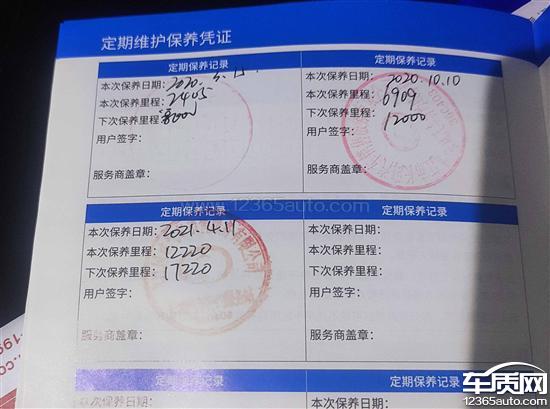 定期维护保养凭证
定期保养记录
本次保养日期：2020.
本次保养里程：2405
下次保养里程：
用户签字：
服务商盖章：
定期保养记录
本次保养日期：2020.10.10
本次保养里程：6909
下次保养里程：12000
用户签字：
服务商盖章：
www.12365auto.com
定期保养记录
本次保养日期：2021.4.11
本次保养里程：12220
下次保养里程：17220
用户签字：
服务商盖章：
定期保养记录
本次保养日期：
本次保养里程：
下次保养里程：
用户签字：
服务商盖章：
定期保养记录
本次保养日期：
定期保养记录
本次保养日期：
车质网
12365auto.com